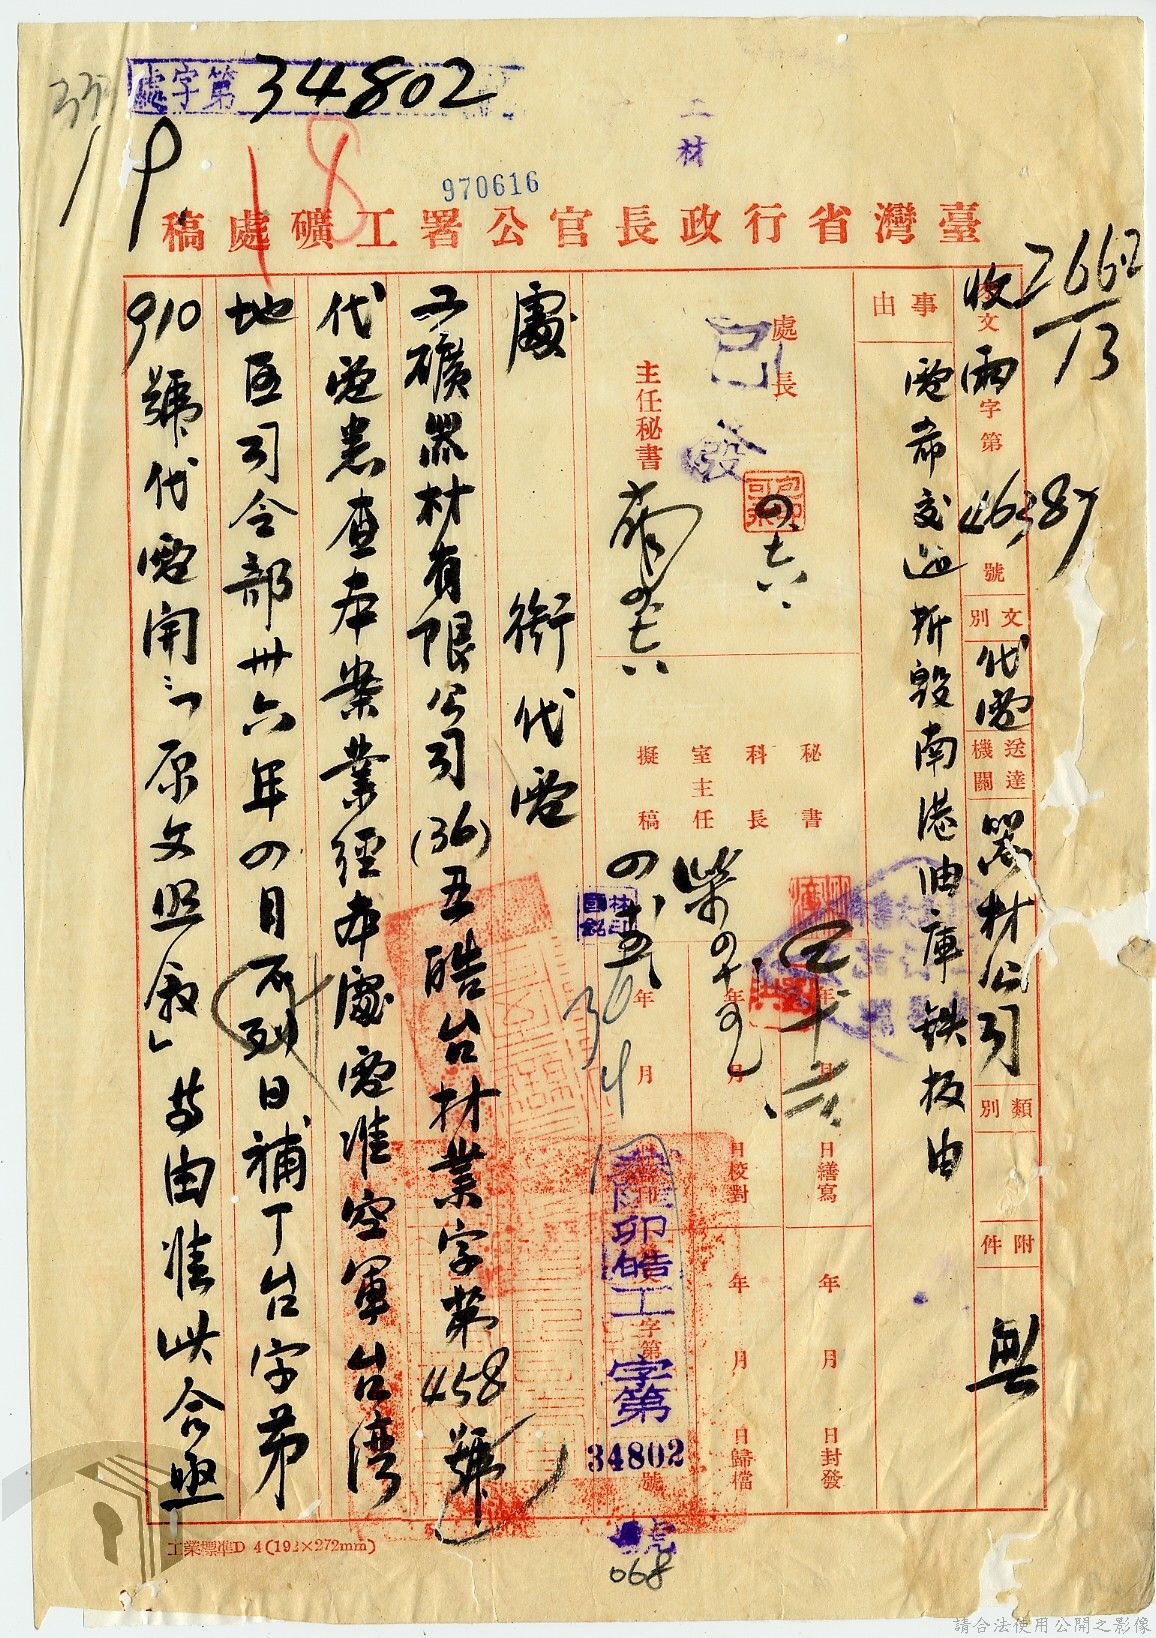 處字第 34802
18
970616
工材
臺灣省行政長官公署工礦處稿
收 2662/13
收文 字第 46387 號
文別 代電
送達機關 器材公司
類別
附件 無
事由
電希交還拆毀南港油庫鉄板由
處長
已發
主任秘書
秘書
科長
室主任
擬稿
年 月 日繕寫
年 月 日校對
年 月 日封發
年 月 日歸檔
卯皓工
字第
34802
號
068
處銜代電
工礦器材有限公司(36)丑皓台材業字第458號
代電悉查本案業經本處電准空軍台湾
地區司令部卅六年四月不列日補丁台字第
910號代電開:「原文照敘」等由准此合亟
工業標準D 4(192×272mm)
請合法使用公開之影像